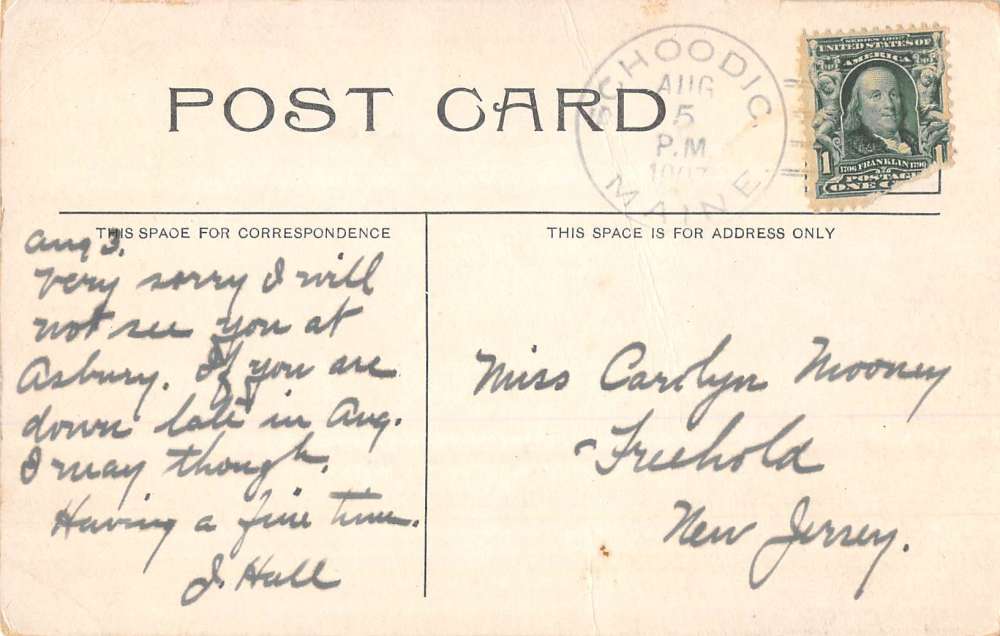 POST CARD
SCHOODIC. MAINE
AUG
5
P.M
1907
SERIES 1902
UNITED STATES OF
AMERICA
1 1
1706 FRANKLIN 1790
POSTAGE
ONE
THIS SPACE FOR CORRESPONDENCE
THIS SPACE IS FOR ADDRESS ONLY
Aug 3.
Very sorry I will
not see you at
Asbury. If you are
down late in Aug.
I may though.
Having a fine time.
J. Hall
Miss Carolyn Mooney
Freehold
New Jersey.